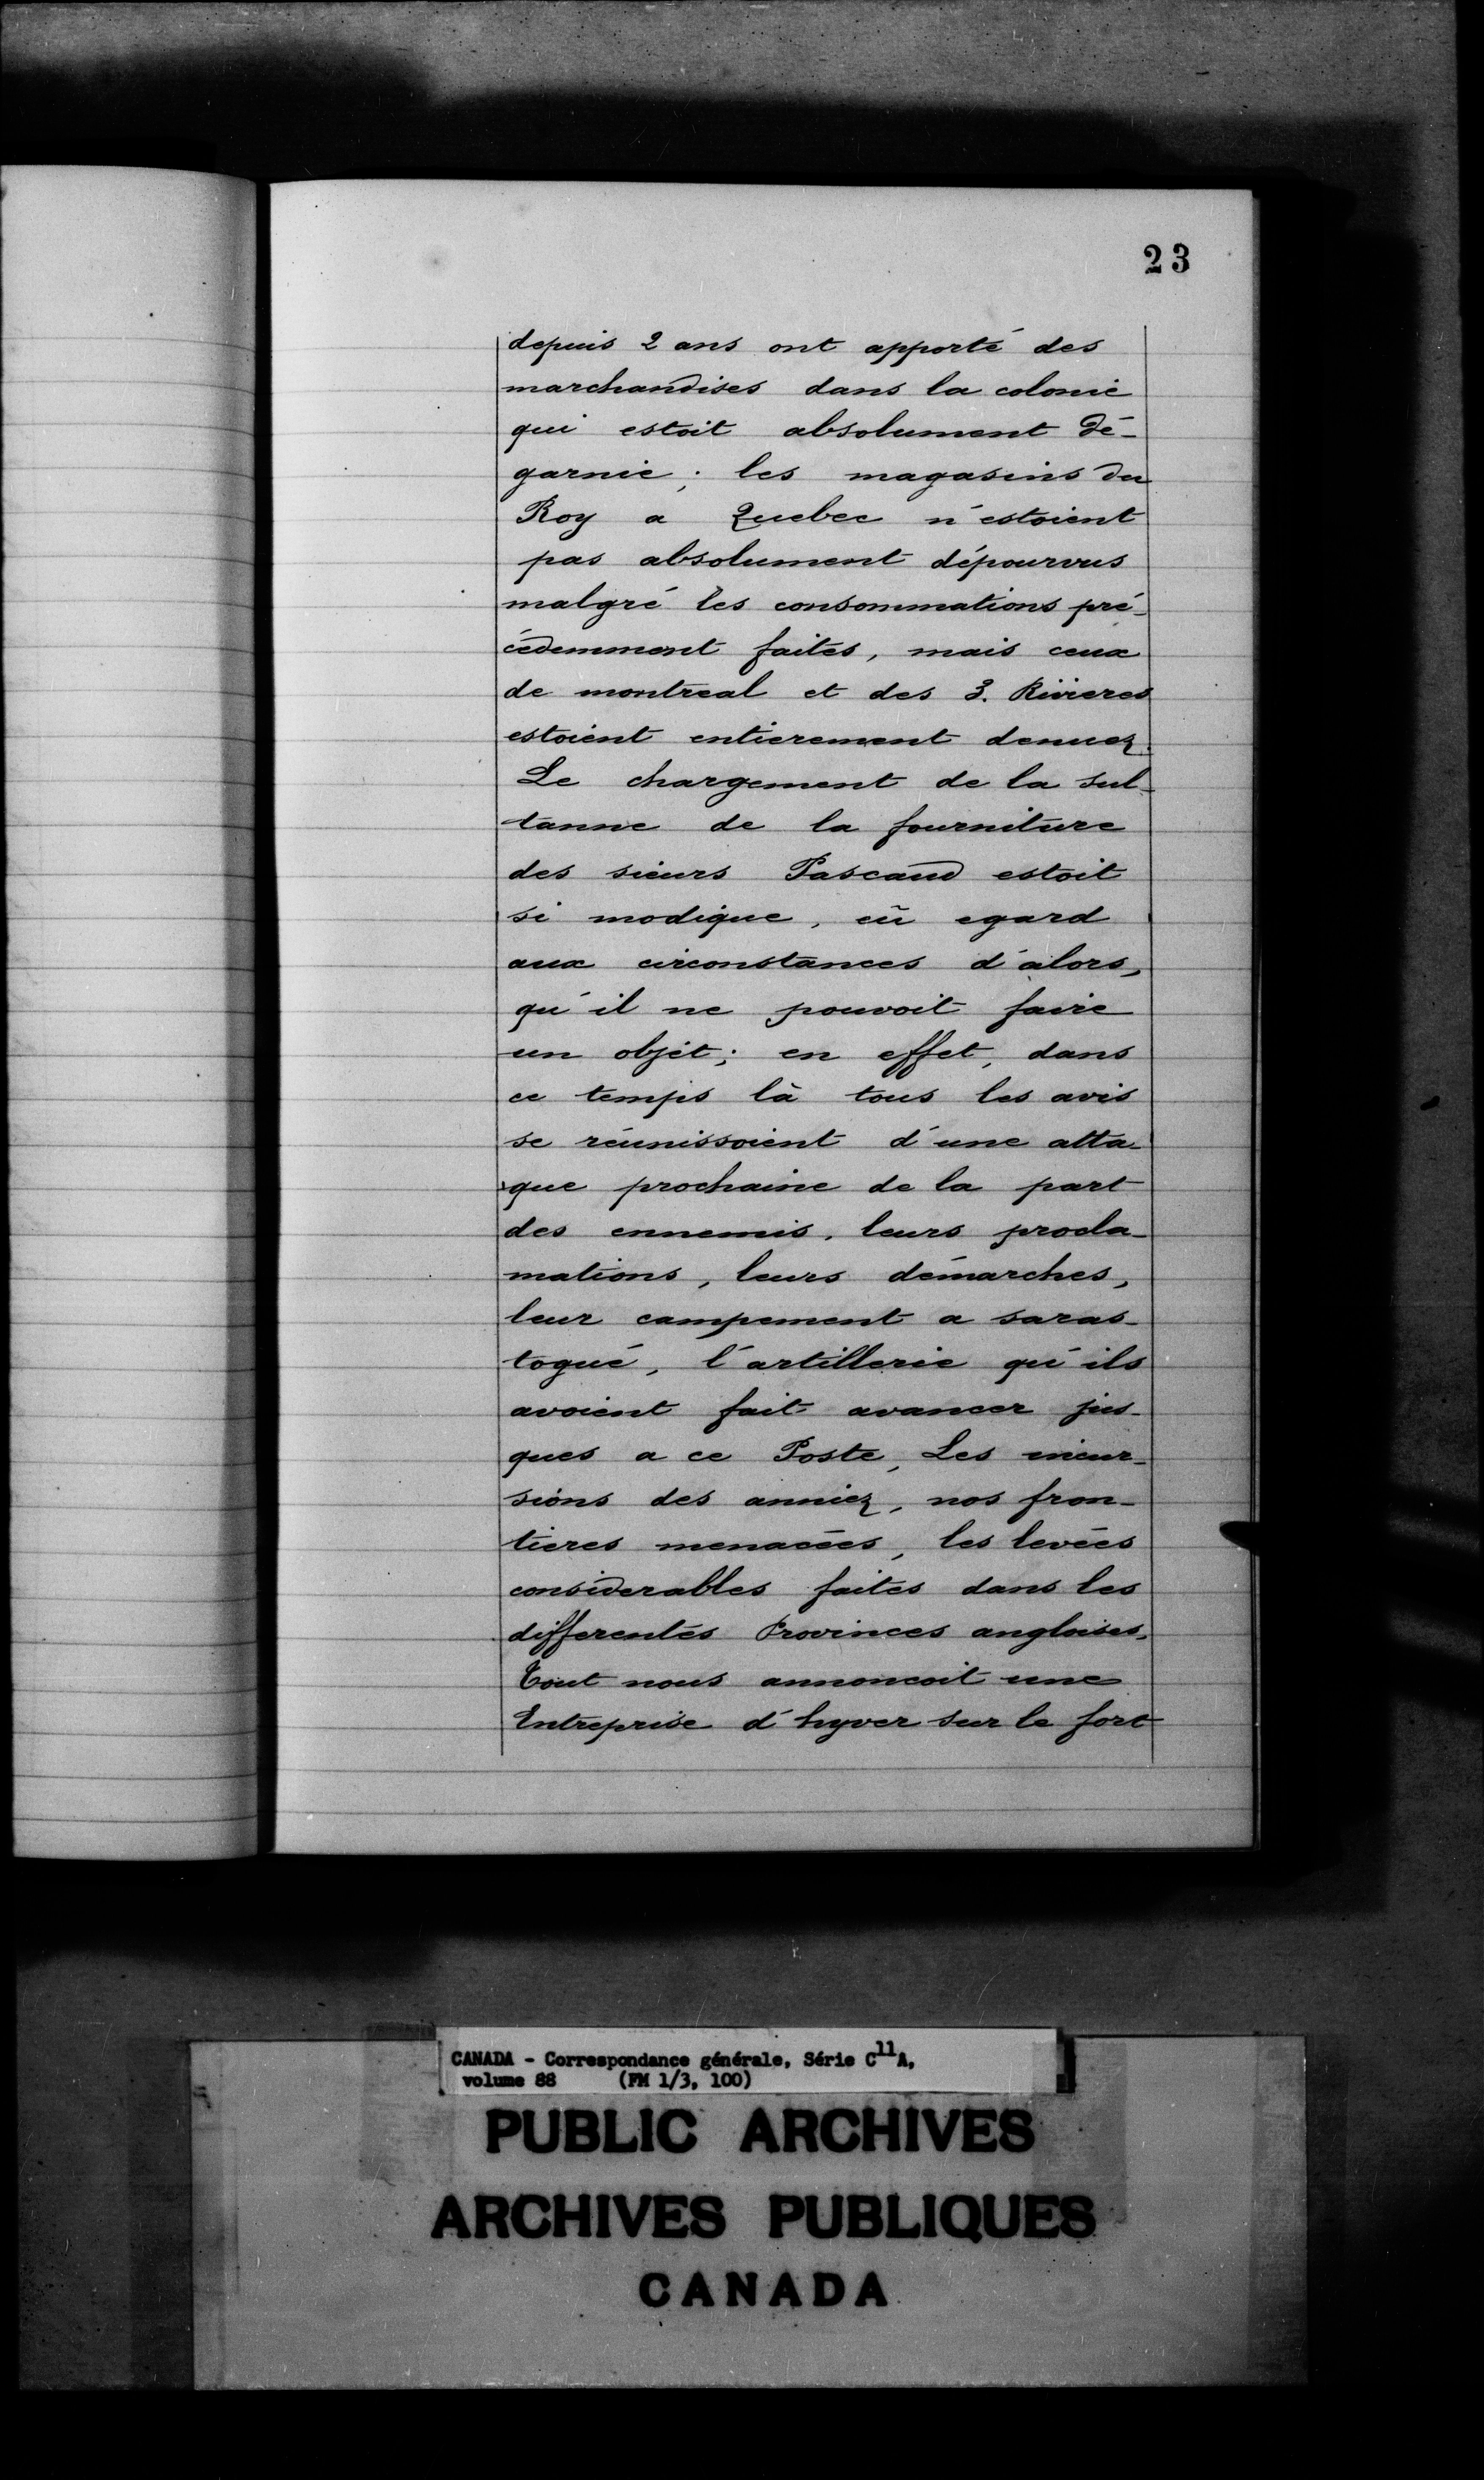 23
depuis 2 ans ont apporté des
marchandises dans la colonie
qui estoit absolument dé-
garnie; les magasins du
Roy a Quebec n'estoient
pas absolument dépourvus
malgré les consommations pré-
cédemment faites, mais ceux
de montreal et des 3. Rivieres
estoient entierement denuez.
Le chargement de la sul-
tanne de la fourniture
des sieurs Pascaud estoit
si modique, eû egard
aux circonstances d'alors,
qu'il ne pouvoit faire
un objet; en effet, dans
ce temps là tous les avis
se réunissoient d'une atta-
que prochaine de la part
des ennemis. leurs procla-
mations, leurs démarches,
leur campement a saras-
togué, l'artillerie qu'ils
avoient fait avancer jus-
ques a ce Poste, Les incur-
sions des anniez, nos fron-
tieres menacées, les levées
considerables faites dans les
differentes Provinces angloises.
Tout nous annoncoit une
Entreprise d'hyver sur le fort
CANADA - Correspondance générale, Série C11A,
volume 88 (FM 1/3, 100)
PUBLIC ARCHIVES
ARCHIVES PUBLIQUES
CANADA